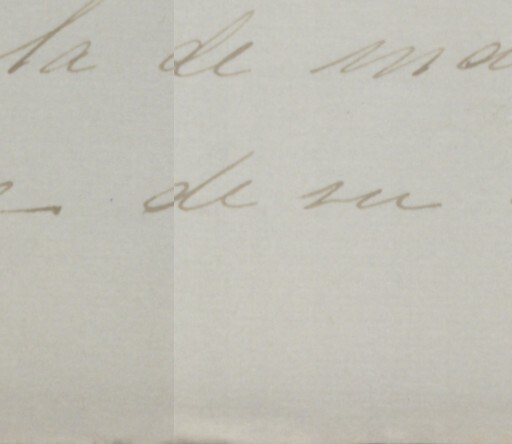 la de
de su